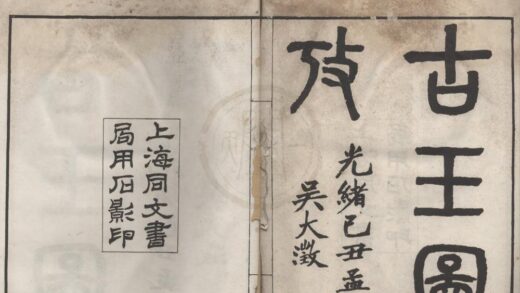 古玉圖
攷
光緒己丑孟
吳大澂
上海同文書
局用石影印